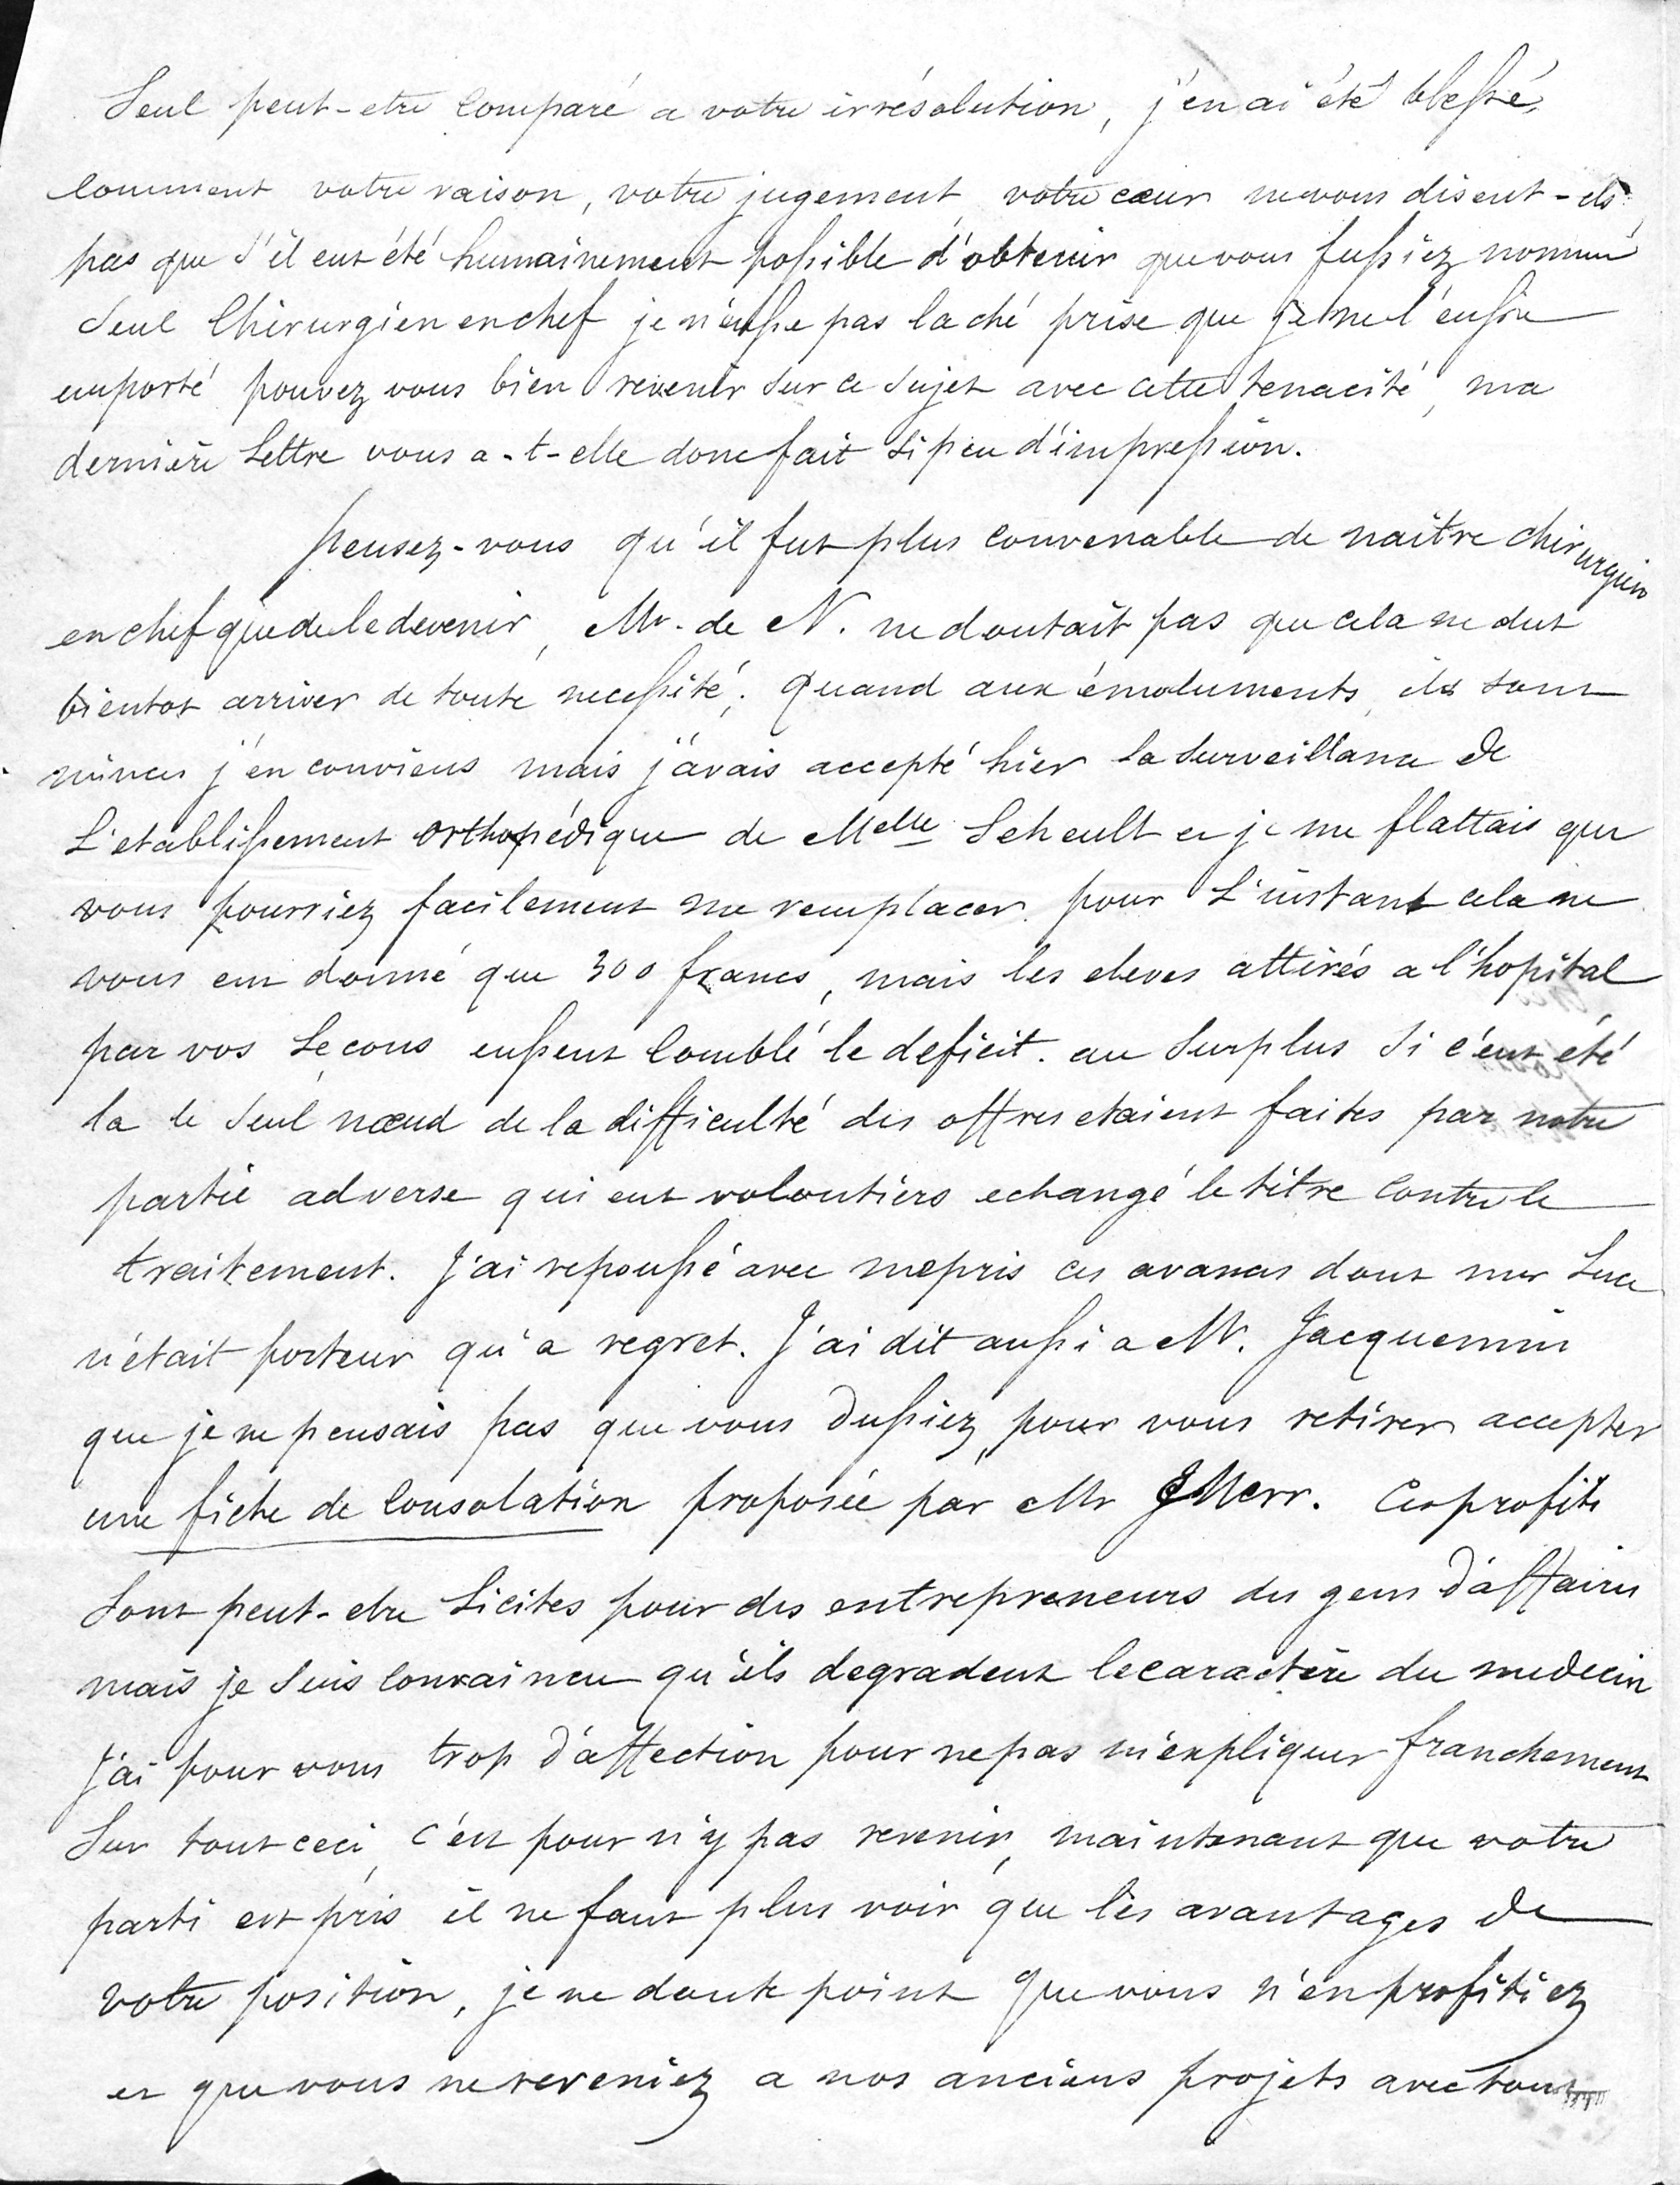 Seul peut-etre comparé a votre irrésolution, j'en ai été blessé,
comment votre raison, votre jugement, votre cœur ne vous disent-ils
pas que s'il eut été humainement possible d'obtenir que vous fussiez nommé
seul Chirurgien en chef je n'eusse pas laché prise que je ne l'eusse
emporté pouvez vous bien revenir sur ce sujet avec cette tenacité, ma
dernière lettre vous a-t-elle donc fait si peu d'impression.
pensez-vous qu'il fut plus convenable de naitre chirurgien
en chef que de le devenir, Mr. de N. ne doutait pas que cela ne dut
bientot arriver de toute necessité; quand aux émoluments, ils sont
minces j'en conviens mais j'avais accepté hier la surveillance de
L'etablissement orthopédique de Melle Seheult et je me flattais que
vous pourriez facilement me remplacer. pour l'instant cela ne
vous eut donné que 300 francs, mais les eleves attirés a l'hopital
par vos leçons eussent comblé le deficit. au surplus si c'eut été
la le seul nœud de la difficulté des offres etaient faites par notre
partie adverse qui eut volontiers echangé le titre contre le
traitement. J'ai repoussé avec mepris ces avances dont mr Luce
n'était porteur qu'a regret. J'ai dit aussi a Mr. Jacquemin
que je ne pensais pas que vous dussiez pour vous retirer accepter
une fiche de consolation proposée par Mr Merr. Ces profits
sont peut-etre licites pour des entrepreneurs des gens d'affaires
mais je suis convaincu qu'ils degradent le caractère du medecin
J'ai pour vous trop d'affection pour ne pas m'expliquer franchement
sur tout ceci, c'est pour n'y pas revenir, maintenant que votre
parti est pris il ne faut plus voir que les avantages de
votre position, je ne doute point que vous n'en profitiez
et que vous ne reveniez a nos anciens projets avec tout